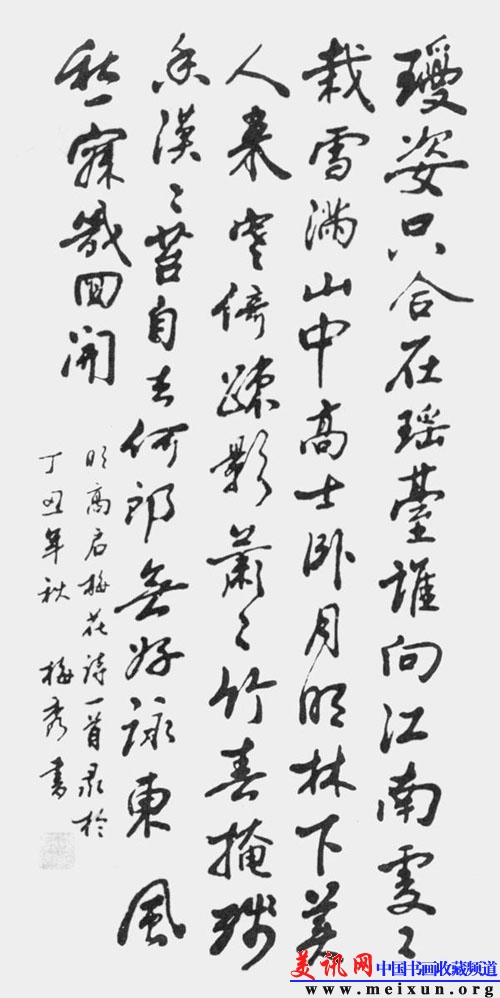 瓊姿只合在瑶臺誰向江南處〻
栽雪满山中高士卧月明林下美
人来寒倚疎影蕭〻竹春掩残
香漠〻苔自去何郎無好詠東風
愁寂幾回開
明高启梅花詩一首录於
丁丑年秋 梅秀書
美讯网 中国书画收藏频道
www.meixun.org